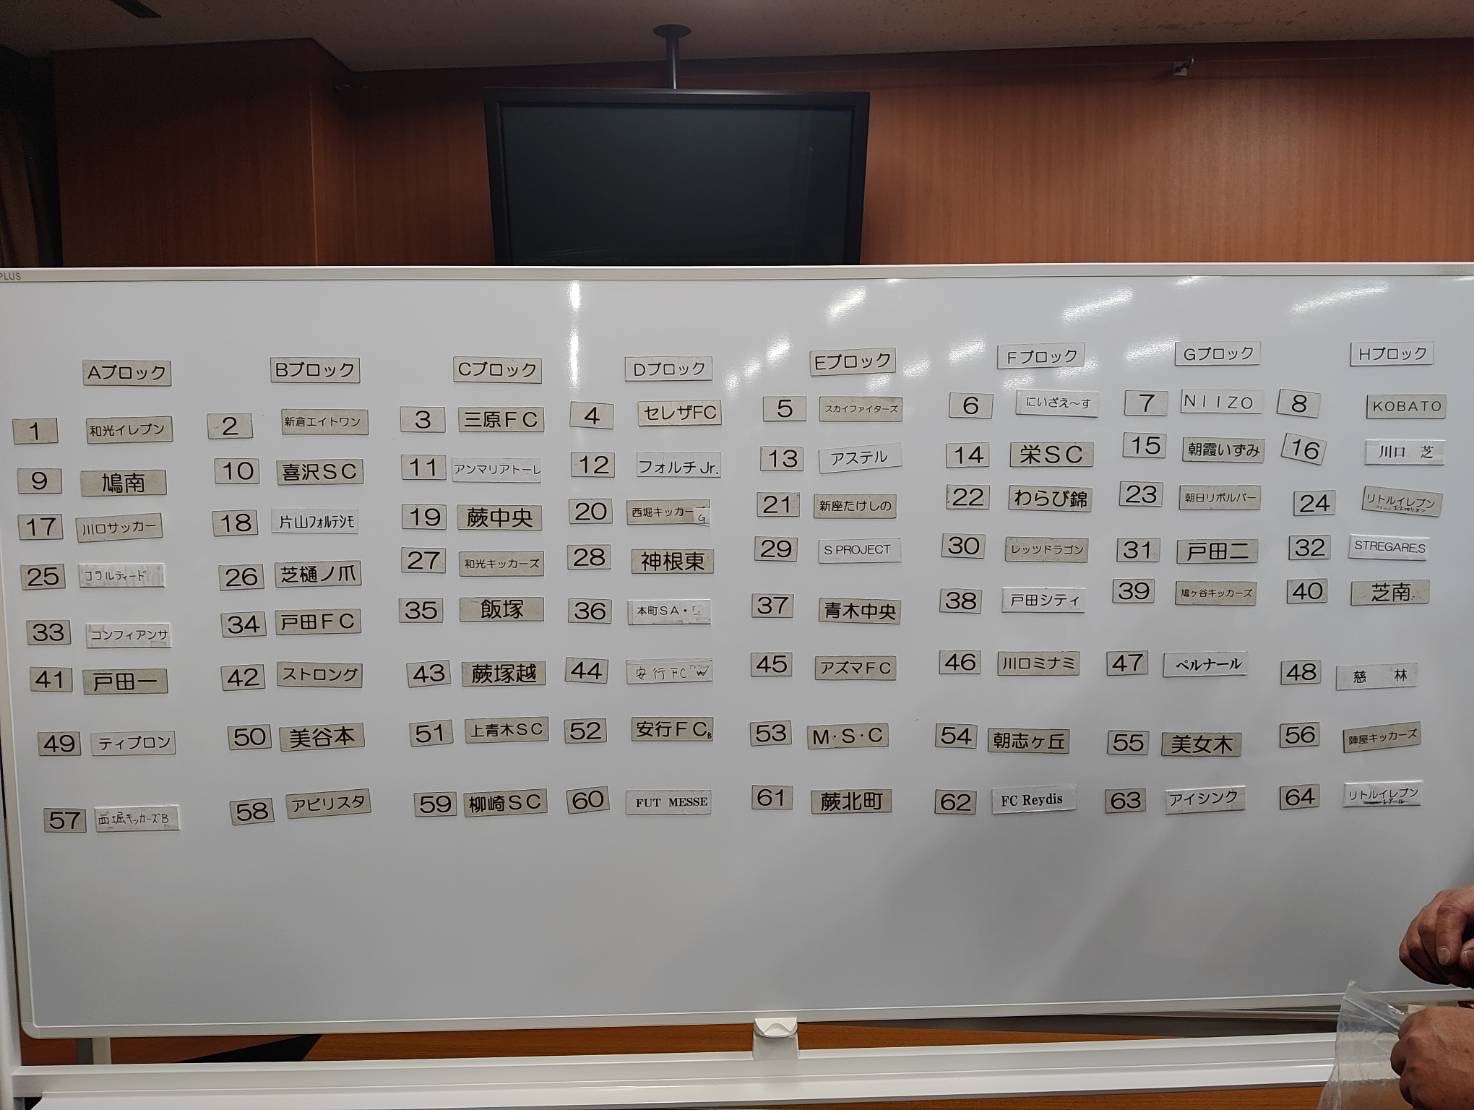 PLUS
Aブロック Bブロック Cブロック Dブロック Eブロック Fブロック Gブロック Hブロック
1 和光イレブン 2 新倉エイトワン 3 三原FC 4 セレザFC 5 スカイファイターズ 6 にいざえ〜す 7 NIIZO 8 KOBATO
9 鳩南 10 喜沢SC 11 アンマリアトーレ 12 フォルチJr. 13 アステル 14 栄SC 15 朝霞いずみ 16 川口 芝
17 川口サッカー 18 片山フォルテシモ 19 蕨中央 20 西堀キッカーズG 21 新座たけしの 22 わらび錦 23 朝日リボルバー 24 リトルイレブン
25 コラルティード 26 芝樋ノ爪 27 和光キッカーズ 28 神根東 29 S PROJECT 30 レッツドラゴン 31 戸田二 32 STREGARE.S
33 コンフィアンサ 34 戸田FC 35 飯塚 36 本町SA・ 37 青木中央 38 戸田シティ 39 鳩ヶ谷キッカーズ 40 芝南
41 戸田一 42 ストロング 43 蕨塚越 44 安行FC W 45 アズマFC 46 川口ミナミ 47 ベルナール 48 慈 林
49 ティブロン 50 美谷本 51 上青木SC 52 安行FCB 53 M・S・C 54 朝志ヶ丘 55 美女木 56 陣屋キッカーズ
57 西堀キッカーズB 58 アビリスタ 59 柳崎SC 60 FUT MESSE 61 蕨北町 62 FC Reydis 63 アイシンク 64 リトルイレブン